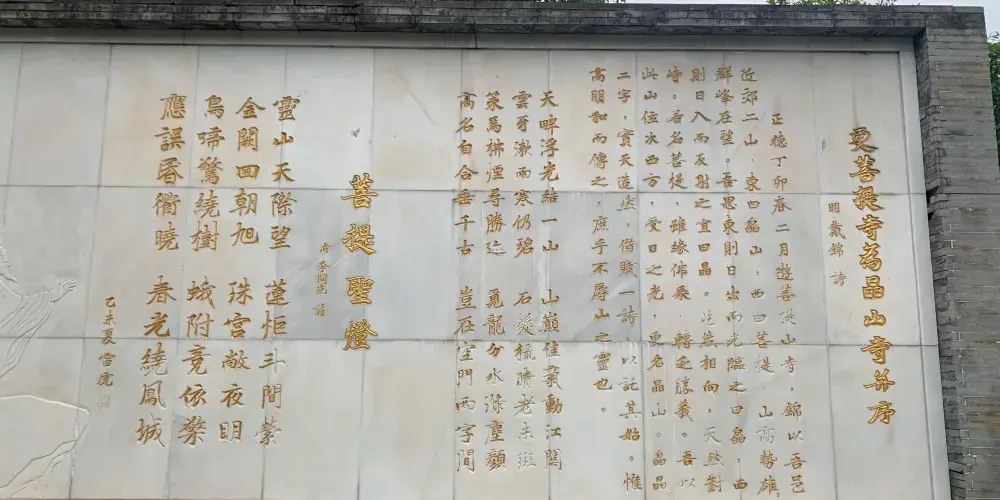 更菩提寺為晶山寺并序
明 戴錦 詩
正德丁卯春二月遊菩提山寺，錦以吾邑
近郊二山，東曰畠山，西曰菩提，山高勢雄，
群峰在望。吾思東則日出而光臨之曰畠，西
則日入而反射之宜曰晶。法其相向，天然對
峙。若名菩提，雖緣佛乘，轉乏諄義。吾以
此山位水西方，受日之光，更名晶山。畠晶
二字，實天造然，偕賦一詩，以託其始。惟
高明和而傳之，庶乎不辱山之靈也。
天畔浮光結一山 山巔佳氣動江關
雲牙漱雨寒仍碧 石髮梳晴老未斑
策馬拂煙尋勝迹 覓龍分水滌塵顏
高名自合垂千古 豈在空門兩字間
菩提聖燈
清 李開先 詩
靈山天際望 蓮炬斗間縈
金闕回朝旭 珠宮敞夜明
鳥啼驚繞樹 蛾附竟依檠
應誤唇衢曉 春光繞鳳城
乙未夏雷虎